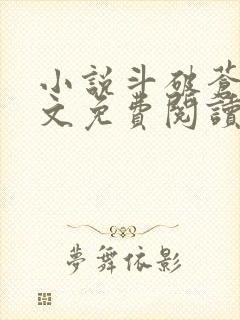 小說斗破蒼
文免費閱讀
夢舞依影